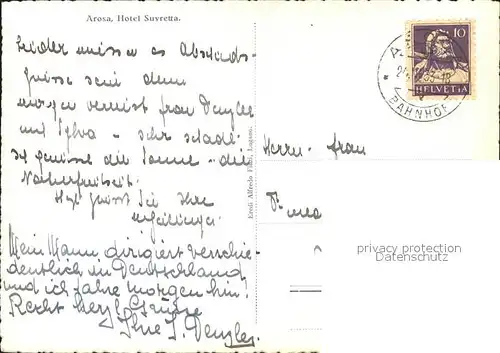 Arosa, Hotel Suvretta.
Leider müssen es Abschieds-
grüsse sein denn
morgen verreist Frau Denzler
und Sylva - sehr schade.
Ich geniesse die Sonne - die
Herzl. grüsst Sie Ihre
Mein Mann dirigiert verschie-
dentlich in Deutschland
und ich fahre morgen hin!
Recht herzl. Grüsse
Ihre S. Denzler.
Emil Alfredo Lugano.
10
HELVETIA
BAHNHOF
Herrn Frau
privacy protection
Datenschutz